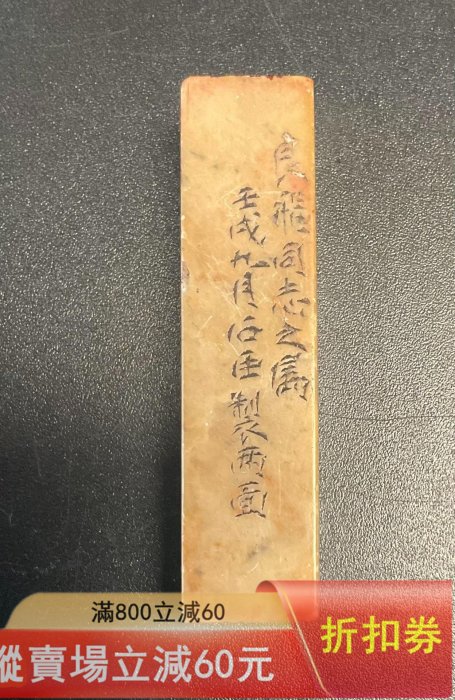 良艇同志之属
壬戌九月石匡製兩面
滿800立減60
縱賣場立減60元
折扣券